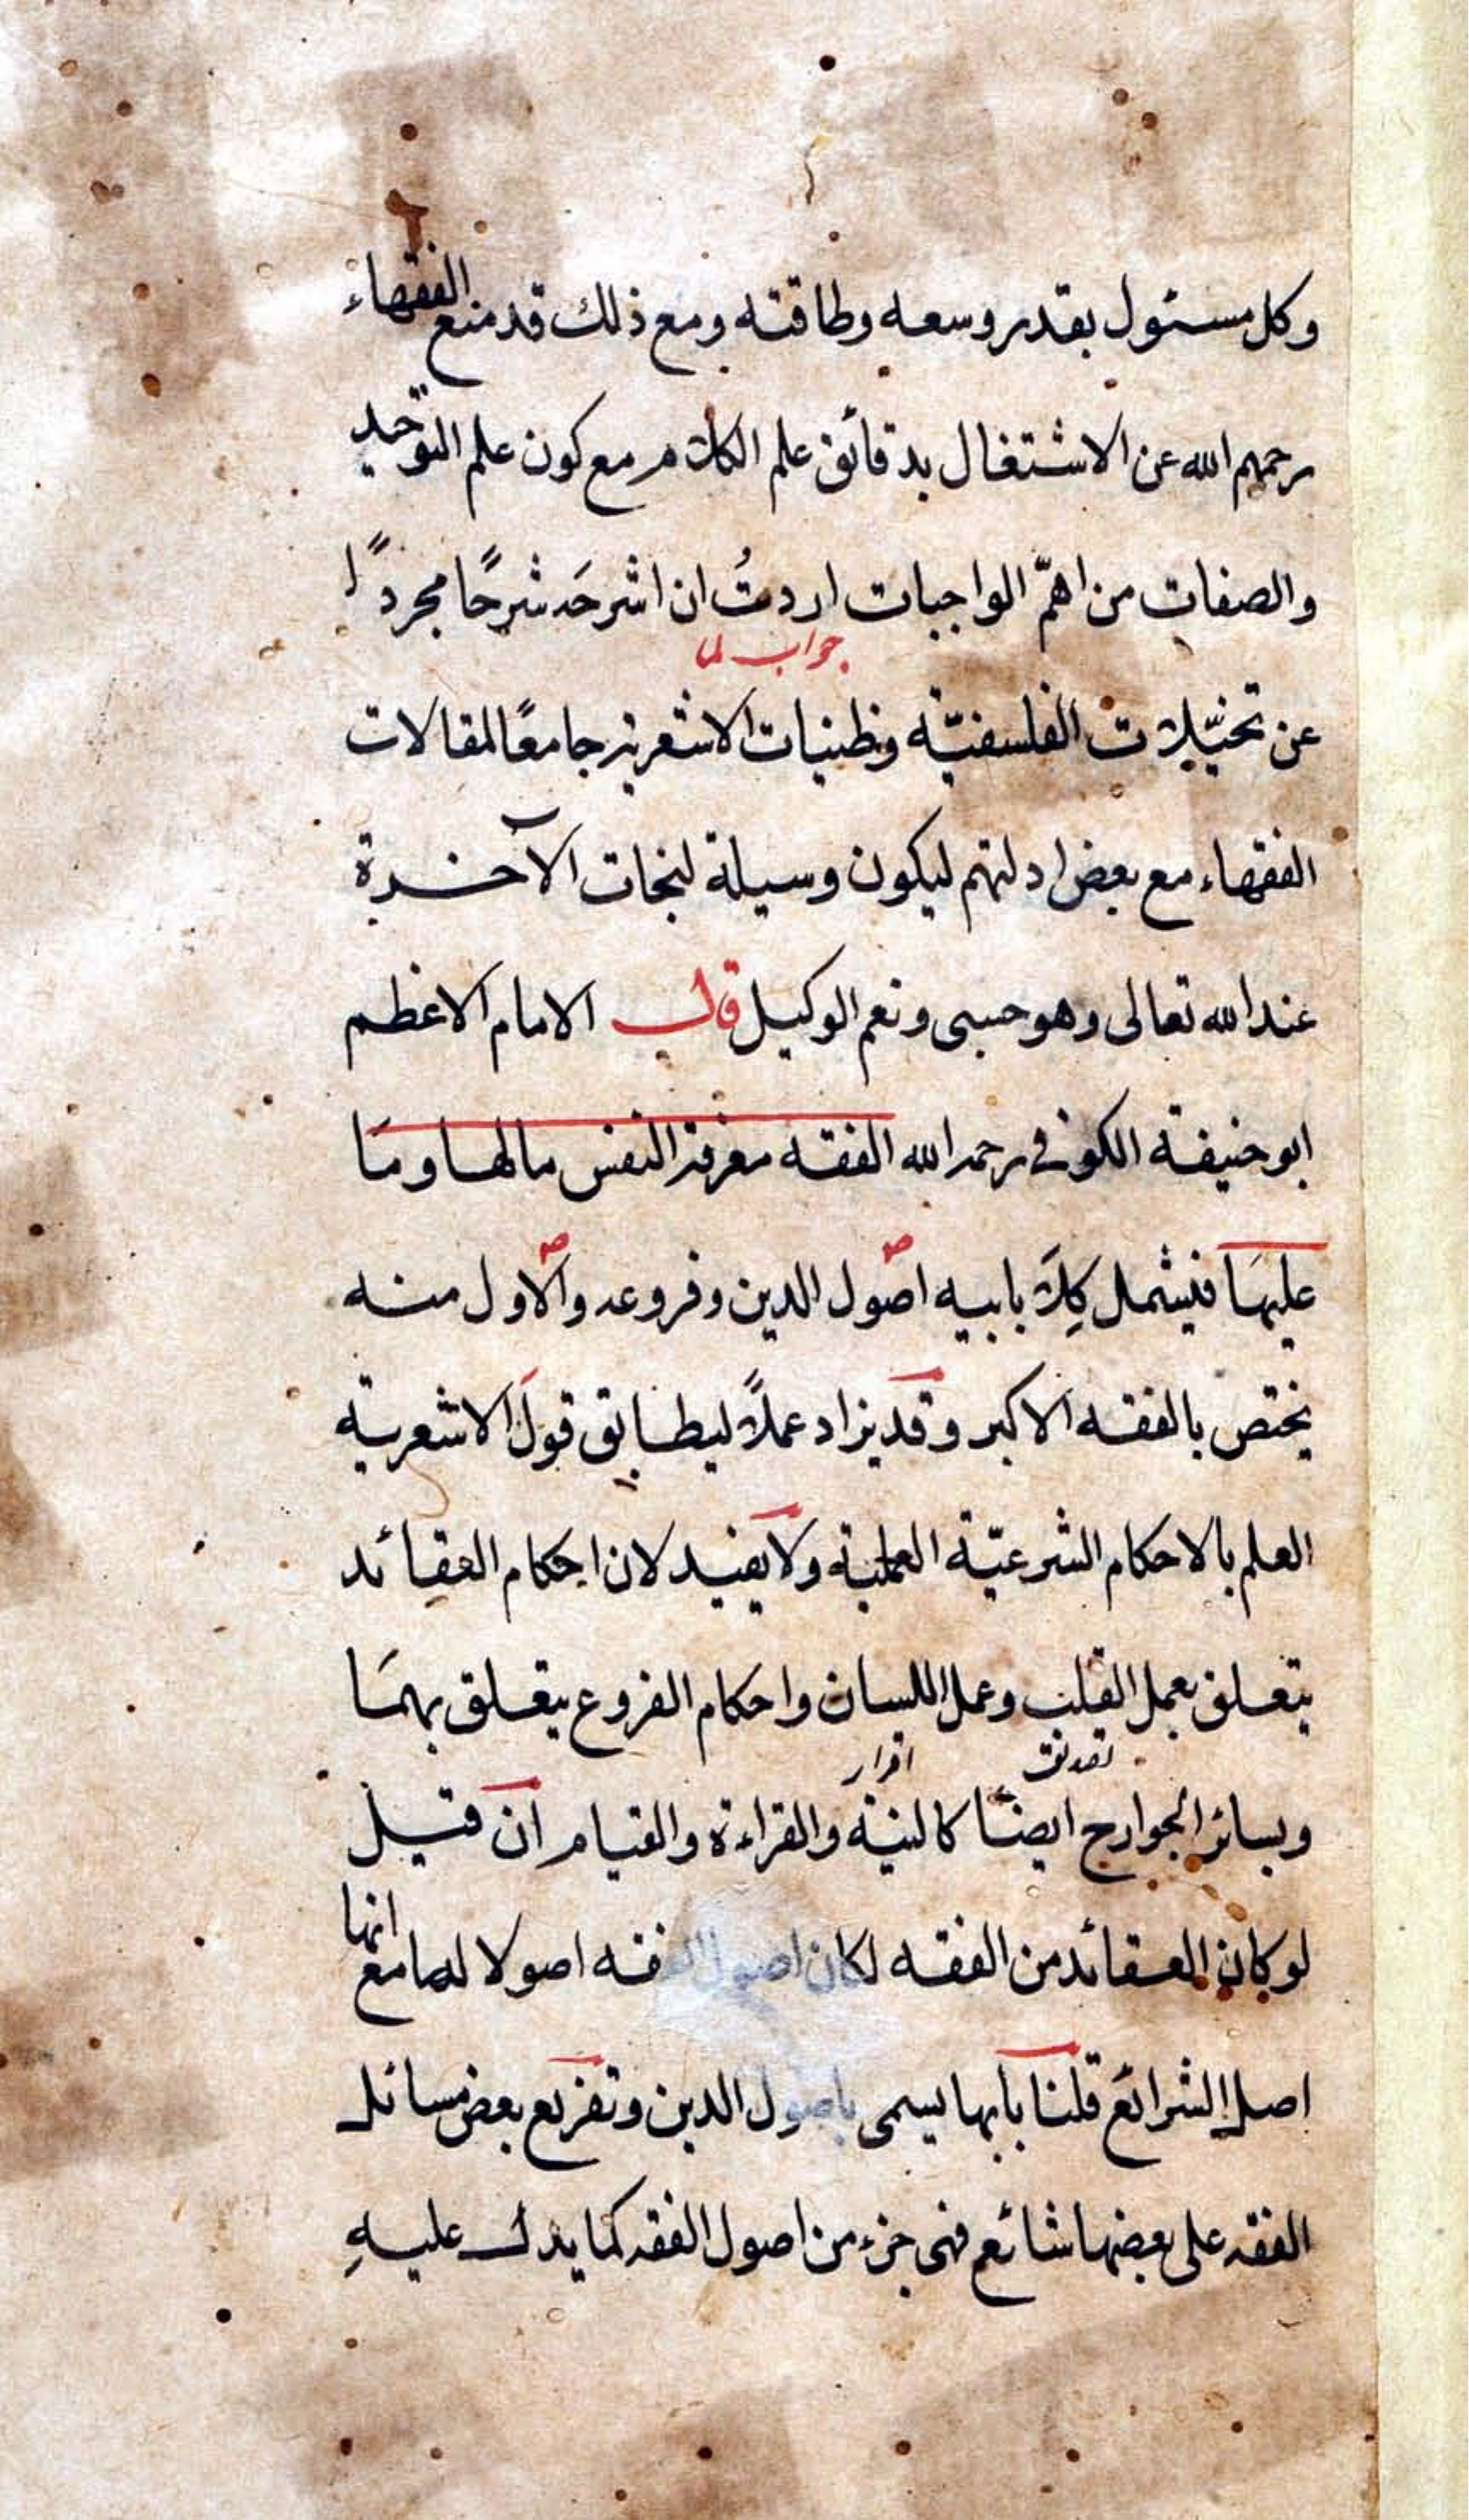 وكل مسئول بقدر وسعه وطاقته ومع ذلك قد منع الفقهاء
رحمهم الله عن الاشتغال بدقائق علم الكلام مع كون علم التوحيد
والصفات من اهمّ الواجبات اردتُ ان اشرحَه شرحًا مجردًا
جواب لما
عن تخيّلات الفلسفيّة وظنيات الاشعرية جامعًا لمقالات
الفقهاء مع بعض ادلتهم ليكون وسيلة لنجات الآخرة
عند الله تعالى وهو حسبى ونعم الوكيل قال الامام الاعظم
ابو حنيفة الكوفى رحمه الله الفقه معرفة النفس مالها ومَا
عليهَا فيشمل كِلَا بابيه اصول الدين وفروعه والاول منه
يختص بالفقه الاكبر وقد يزاد عملاً ليطابق قولَ الاشعرية
العلم بالاحكام الشرعيّة العملية ولا يفيد لان احكام العقائد
يتعلق بعمل القلب وعمل اللسان واحكام الفروع يتعلق بهمَا
تصديق اقرار
وبسائر الجوارح ايضًا كالنية والقراءة والقيام ان قيل
لو كان العقائد من الفقه لكان اصول الفقه اصولا لها مع انها
اصل الشرائع قلنا بابها يسمى باصول الدين وتفريع بعض مسائل
الفقه على بعضها شائع فهى جزء من اصول الفقه كما يدل عليهِ